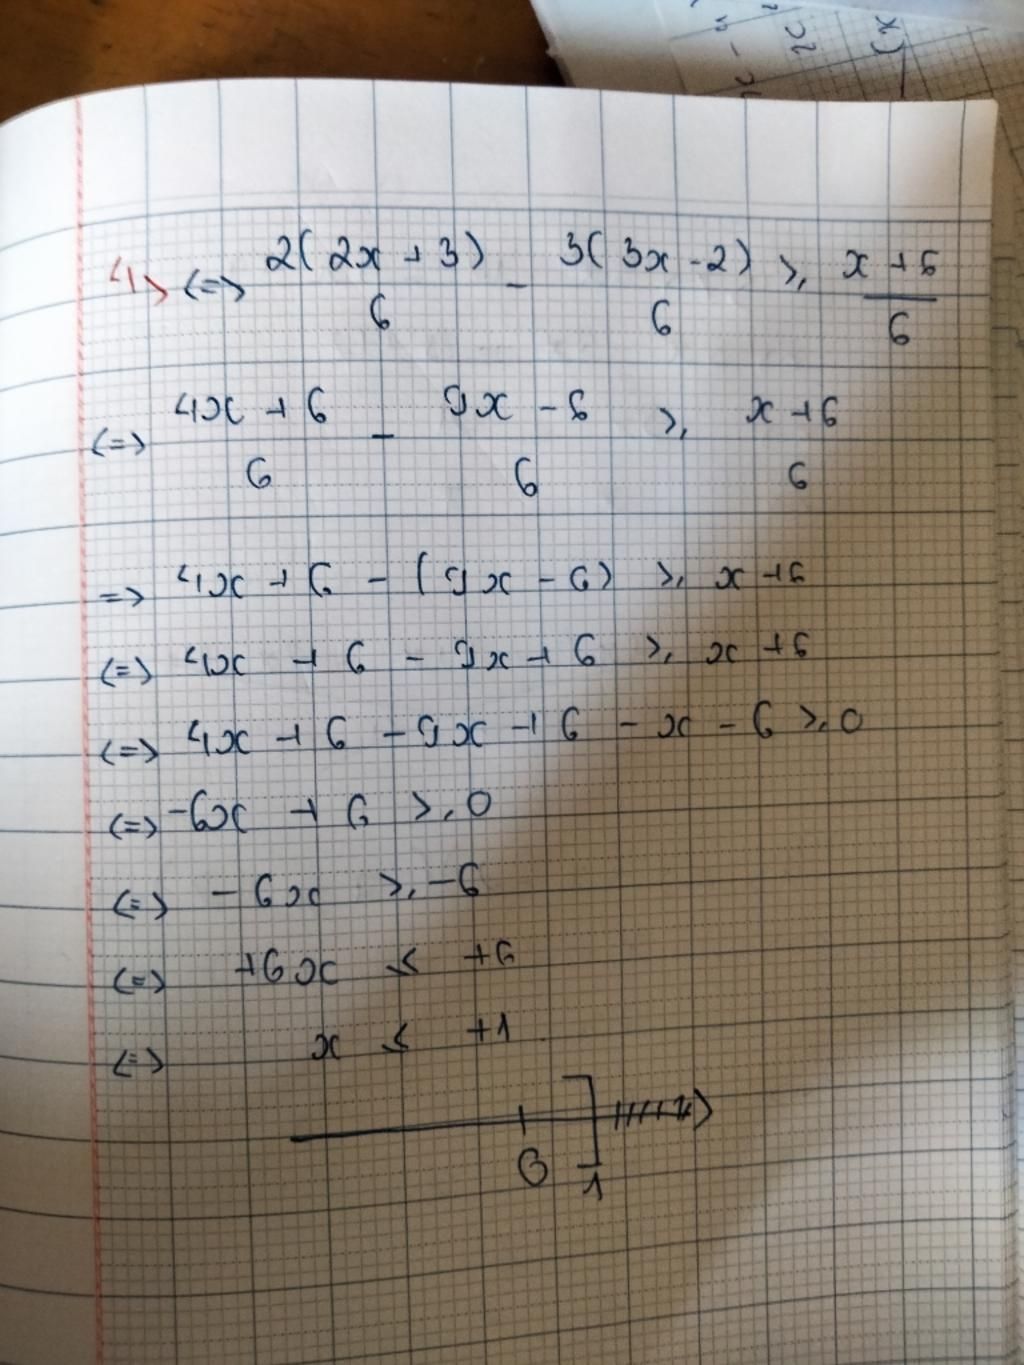 4) <=> 2(2x + 3)/6 - 3(3x - 2)/6 ⩾ x + 6/6
<=> 4x + 6/6 - 9x - 6/6 ⩾ x + 6/6
=> 4x + 6 - (9x - 6) ⩾ x + 6
<=> 4x + 6 - 9x + 6 ⩾ x + 6
<=> 4x + 6 - 9x + 6 - x - 6 ⩾ 0
<=> -6x + 6 ⩾ 0
<=> - 6x ⩾ -6
<=> +6x ⩽ +6
<=> x ⩽ +1
0 1